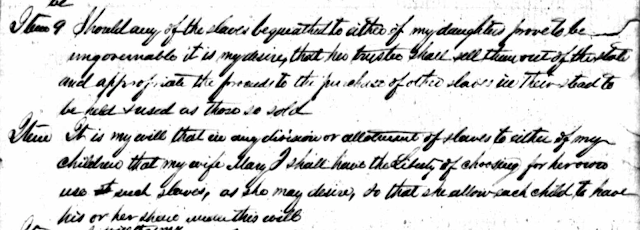 be
Item 9 Should any of the slaves bequeathed to either of my daughters prove to be
ungovernable it is my desire, that her trustee shall sell them out of the state
and appropriate the proceeds to the purchase of other slaves in their stead to
be held & used as those so sold
Item It is my will that in any division or allotment of slaves to either of my
children that my wife Mary J shall have the Liberty of choosing for her own
use such slaves, as she may desire, so that she allow each child to have
his or her share under this will